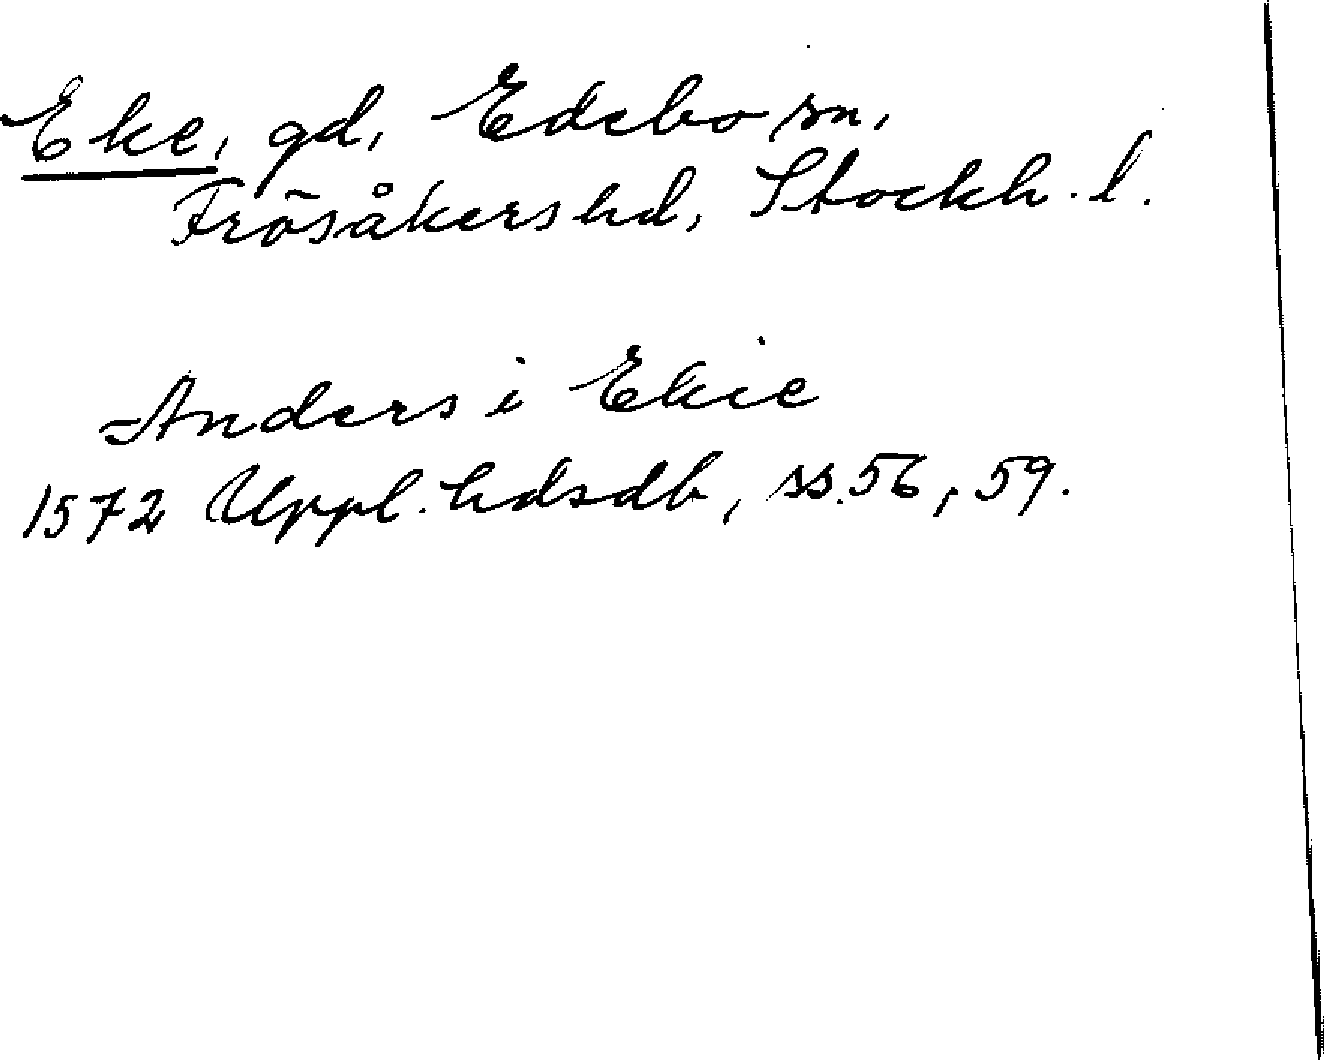 Eke, gd, Edebo sn,
Frösåkers hd, Stockh. l.
Anders i Ekie
1572 Uppl. hdsdb, ss. 56, 59.